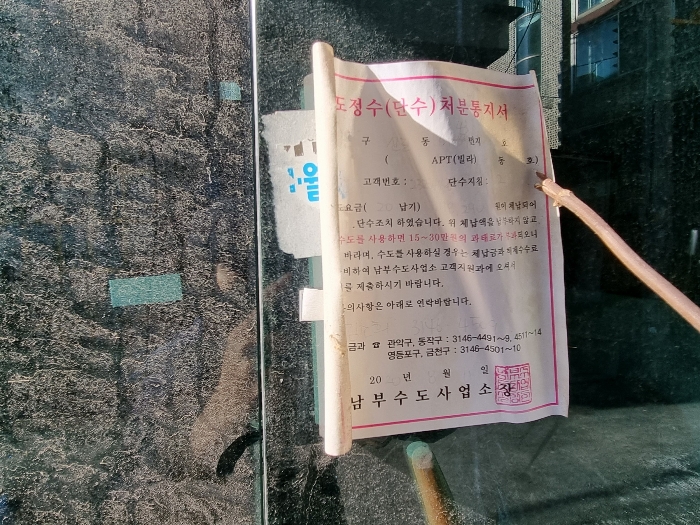 도정수(단수)처분통지서
구 동 번지 호
( APT(빌라) 동 호)
고객번호 : 단수지침 :
도요금( 납기) 원이 체납되어
단수조치 하였습니다. 위 체납액을 납부하지 않고
수도를 사용하면 15~30만원의 과태료가 부과되오니
바라며, 수도를 사용하실 경우는 체납금과 해제수수료
비하여 남부수도사업소 고객지원과에 오셔서
를 제출하시기 바랍니다.
의사항은 아래로 연락바랍니다.
금과 ☎ 관악구, 동작구 : 3146-4491~9, 4511~14
영등포구, 금천구 : 3146-4501~10
20 년 월 일
남부수도사업소장